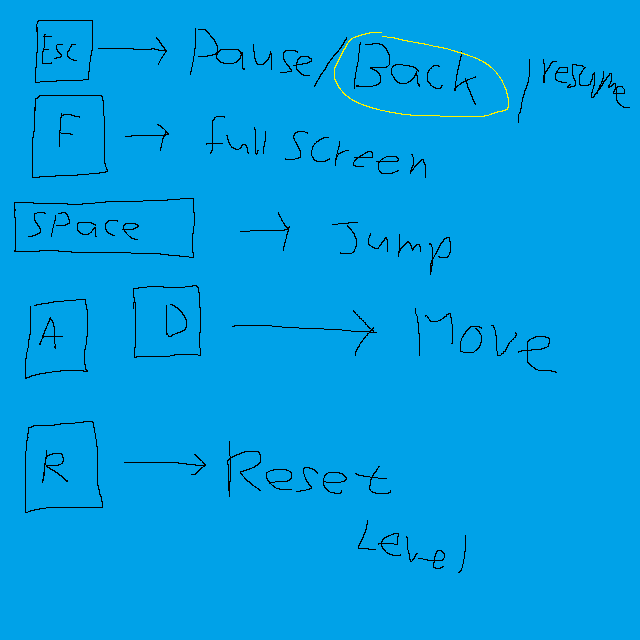 Esc → Pause/Back/resume
F → full screen
SPace → Jump
A D → Move
R → Reset
Level